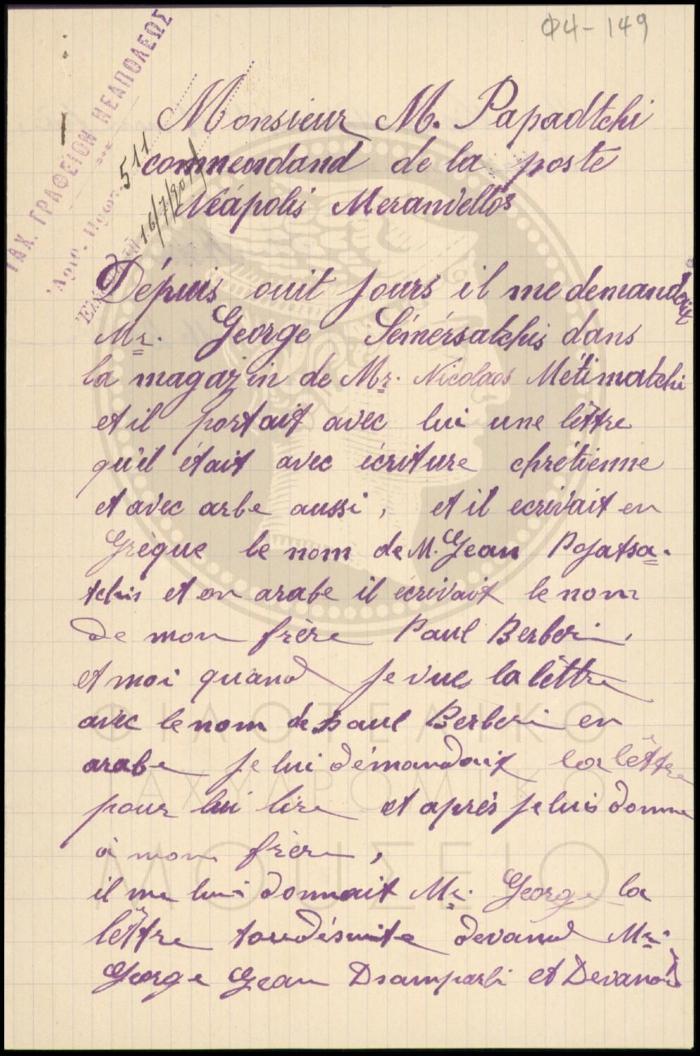 Φ4-149
ΤΑΧ. ΓΡΑΦΕΙΟΝ ΝΕΑΠΟΛΕΩΣ
511
16/7/901
Monsieur M. Papadtchi
commendand de la poste
Néápolis Meranvellos
Dépuis ouit jours il me demandait
Mr. George Sémérsatchis dans
la magazin de Mr. Nicolaos Métimatchi
et il portait avec lui une lêttre
qu'il était avec écriture chrétienne
et avec arbe aussi, et il ecrivait en
Grèque le nom de M. Jean Pojatsa-
tchis et en arabe il écrivait le nom
de mon frère Paul Berberi,
et moi quand je vue la lêttre
avec le nom de Paul Berberi en
arabe je lui démandait la lêttre
pour lui lire et aprés je luis donne
à mon frère,
il me luis donnait Mr. George la
lêttre toudésuite devand Mr.
George Jean Dsamparbi et Devand
ΦΙΛΟΤΕΛΙΚΟ
ΤΑΧΥΔΡΟΜΙΚΟ
ΜΟΥΣΕΙΟ